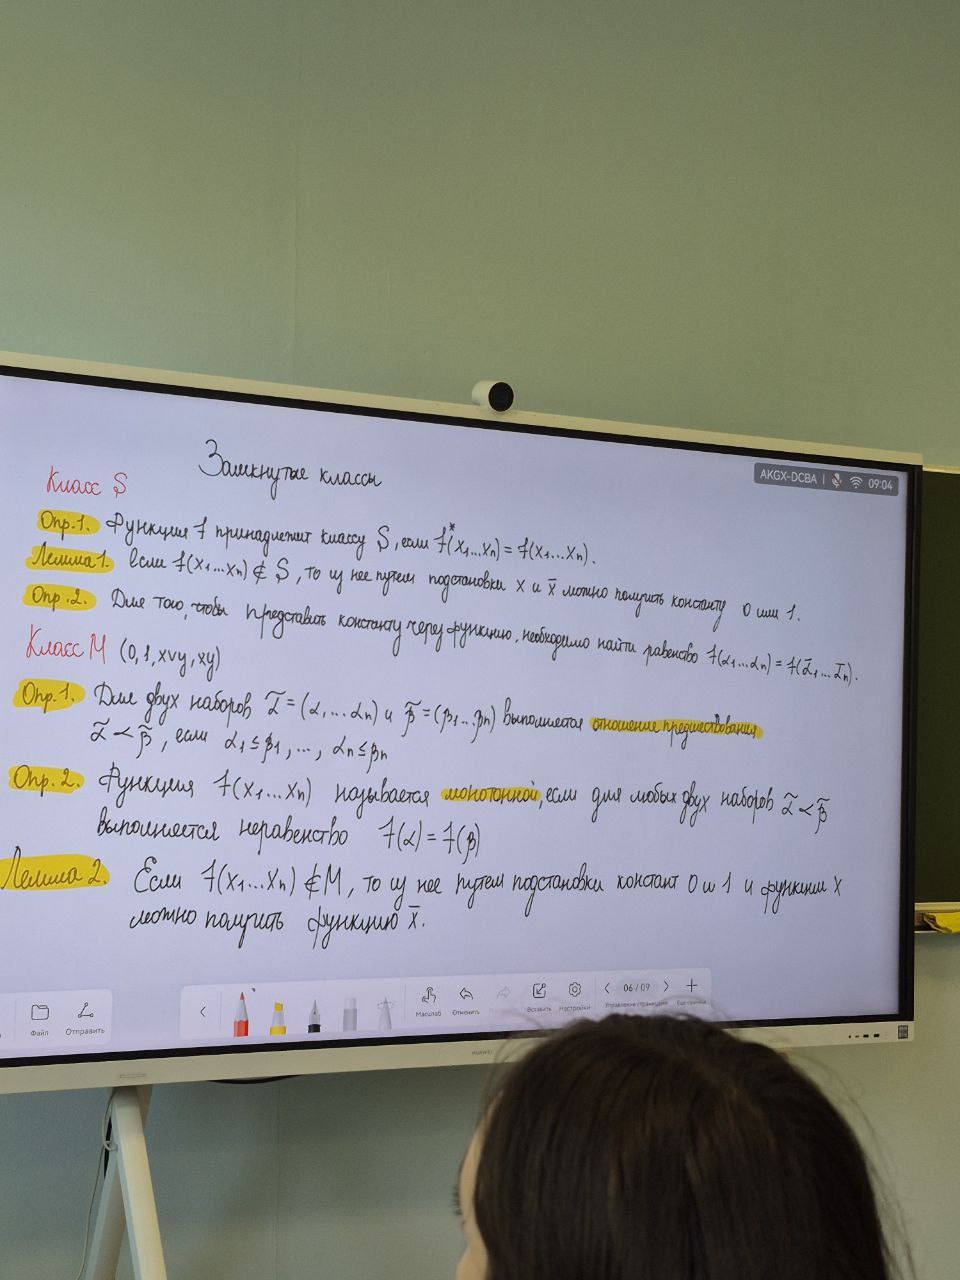 Замкнутые классы
AKGX-DCBA | 09:04
Класс S
Опр.1. Функция f принадлежит классу S, если f*(x₁...xₙ) = f(x₁...xₙ).
Лемма 1. Если f(x₁...xₙ) ∉ S, то из нее путем подстановки x и x̄ можно получить константу 0 или 1.
Опр.2. Для того, чтобы представить константу через функцию, необходимо найти равенство f(α₁...αₙ) = f(ᾱ₁...ᾱₙ).
Класс M (0, 1, x∨y, xy)
Опр.1. Для двух наборов α̃ = (α₁...αₙ) и β̃ = (β₁...βₙ) выполняется отношение предшествования
α̃ ≺ β̃, если α₁ ≤ β₁, ..., αₙ ≤ βₙ
Опр.2. Функция f(x₁...xₙ) называется монотонной, если для любых двух наборов α̃ ≺ β̃
выполняется неравенство f(α) = f(β)
Лемма 2. Если f(x₁...xₙ) ∉ M, то из нее путем подстановки констант 0 и 1 и функции x
можно получить функцию x̄.
Файл Отправить Масштаб Отменить Вставить Настройки 06 / 09 Управление страницами
HUAWEI